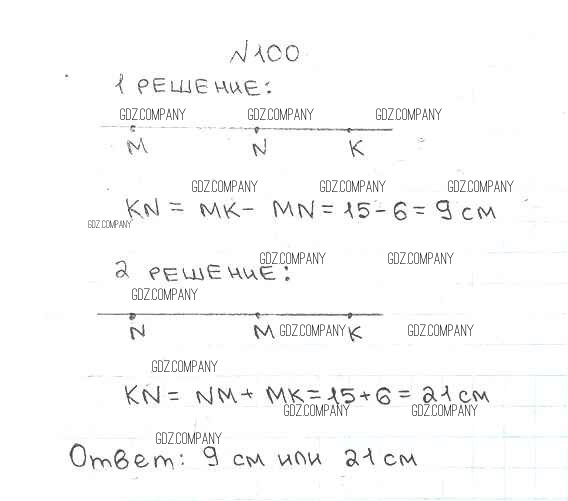 №100
1 РЕШЕНИЕ:
GDZ.COMPANY GDZ.COMPANY GDZ.COMPANY
M N K
GDZ.COMPANY GDZ.COMPANY GDZ.COMPANY
KN = MK - MN = 15 - 6 = 9 см
GDZ.COMPANY
GDZ.COMPANY GDZ.COMPANY
2 РЕШЕНИЕ:
GDZ.COMPANY
N M GDZ.COMPANY K GDZ.COMPANY
GDZ.COMPANY
KN = NM + MK = 15 + 6 = 21 см
GDZ.COMPANY GDZ.COMPANY
GDZ.COMPANY
Ответ: 9 см или 21 см